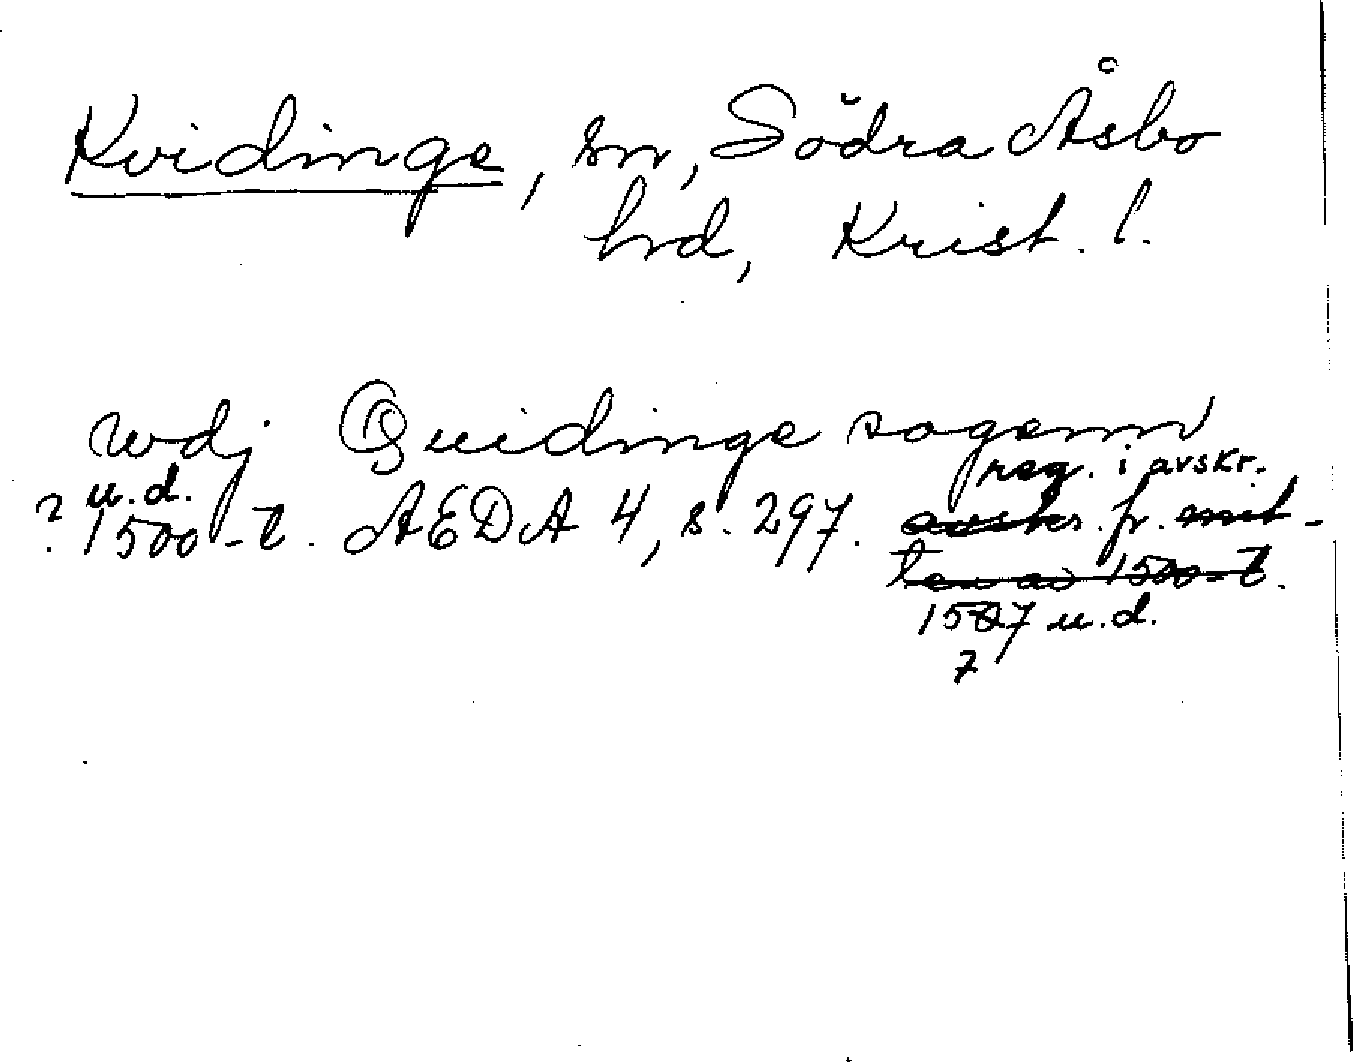 Kvidinge, sn, Södra Åsbo
hrd, Krist. l.
wdj Quidinge sogenn
u.d. reg. i avskr.
? 1500-t. AEDA 4, s. 297. avskr. fr. mit-
ten av 1500-t.
1527 u.d.
7